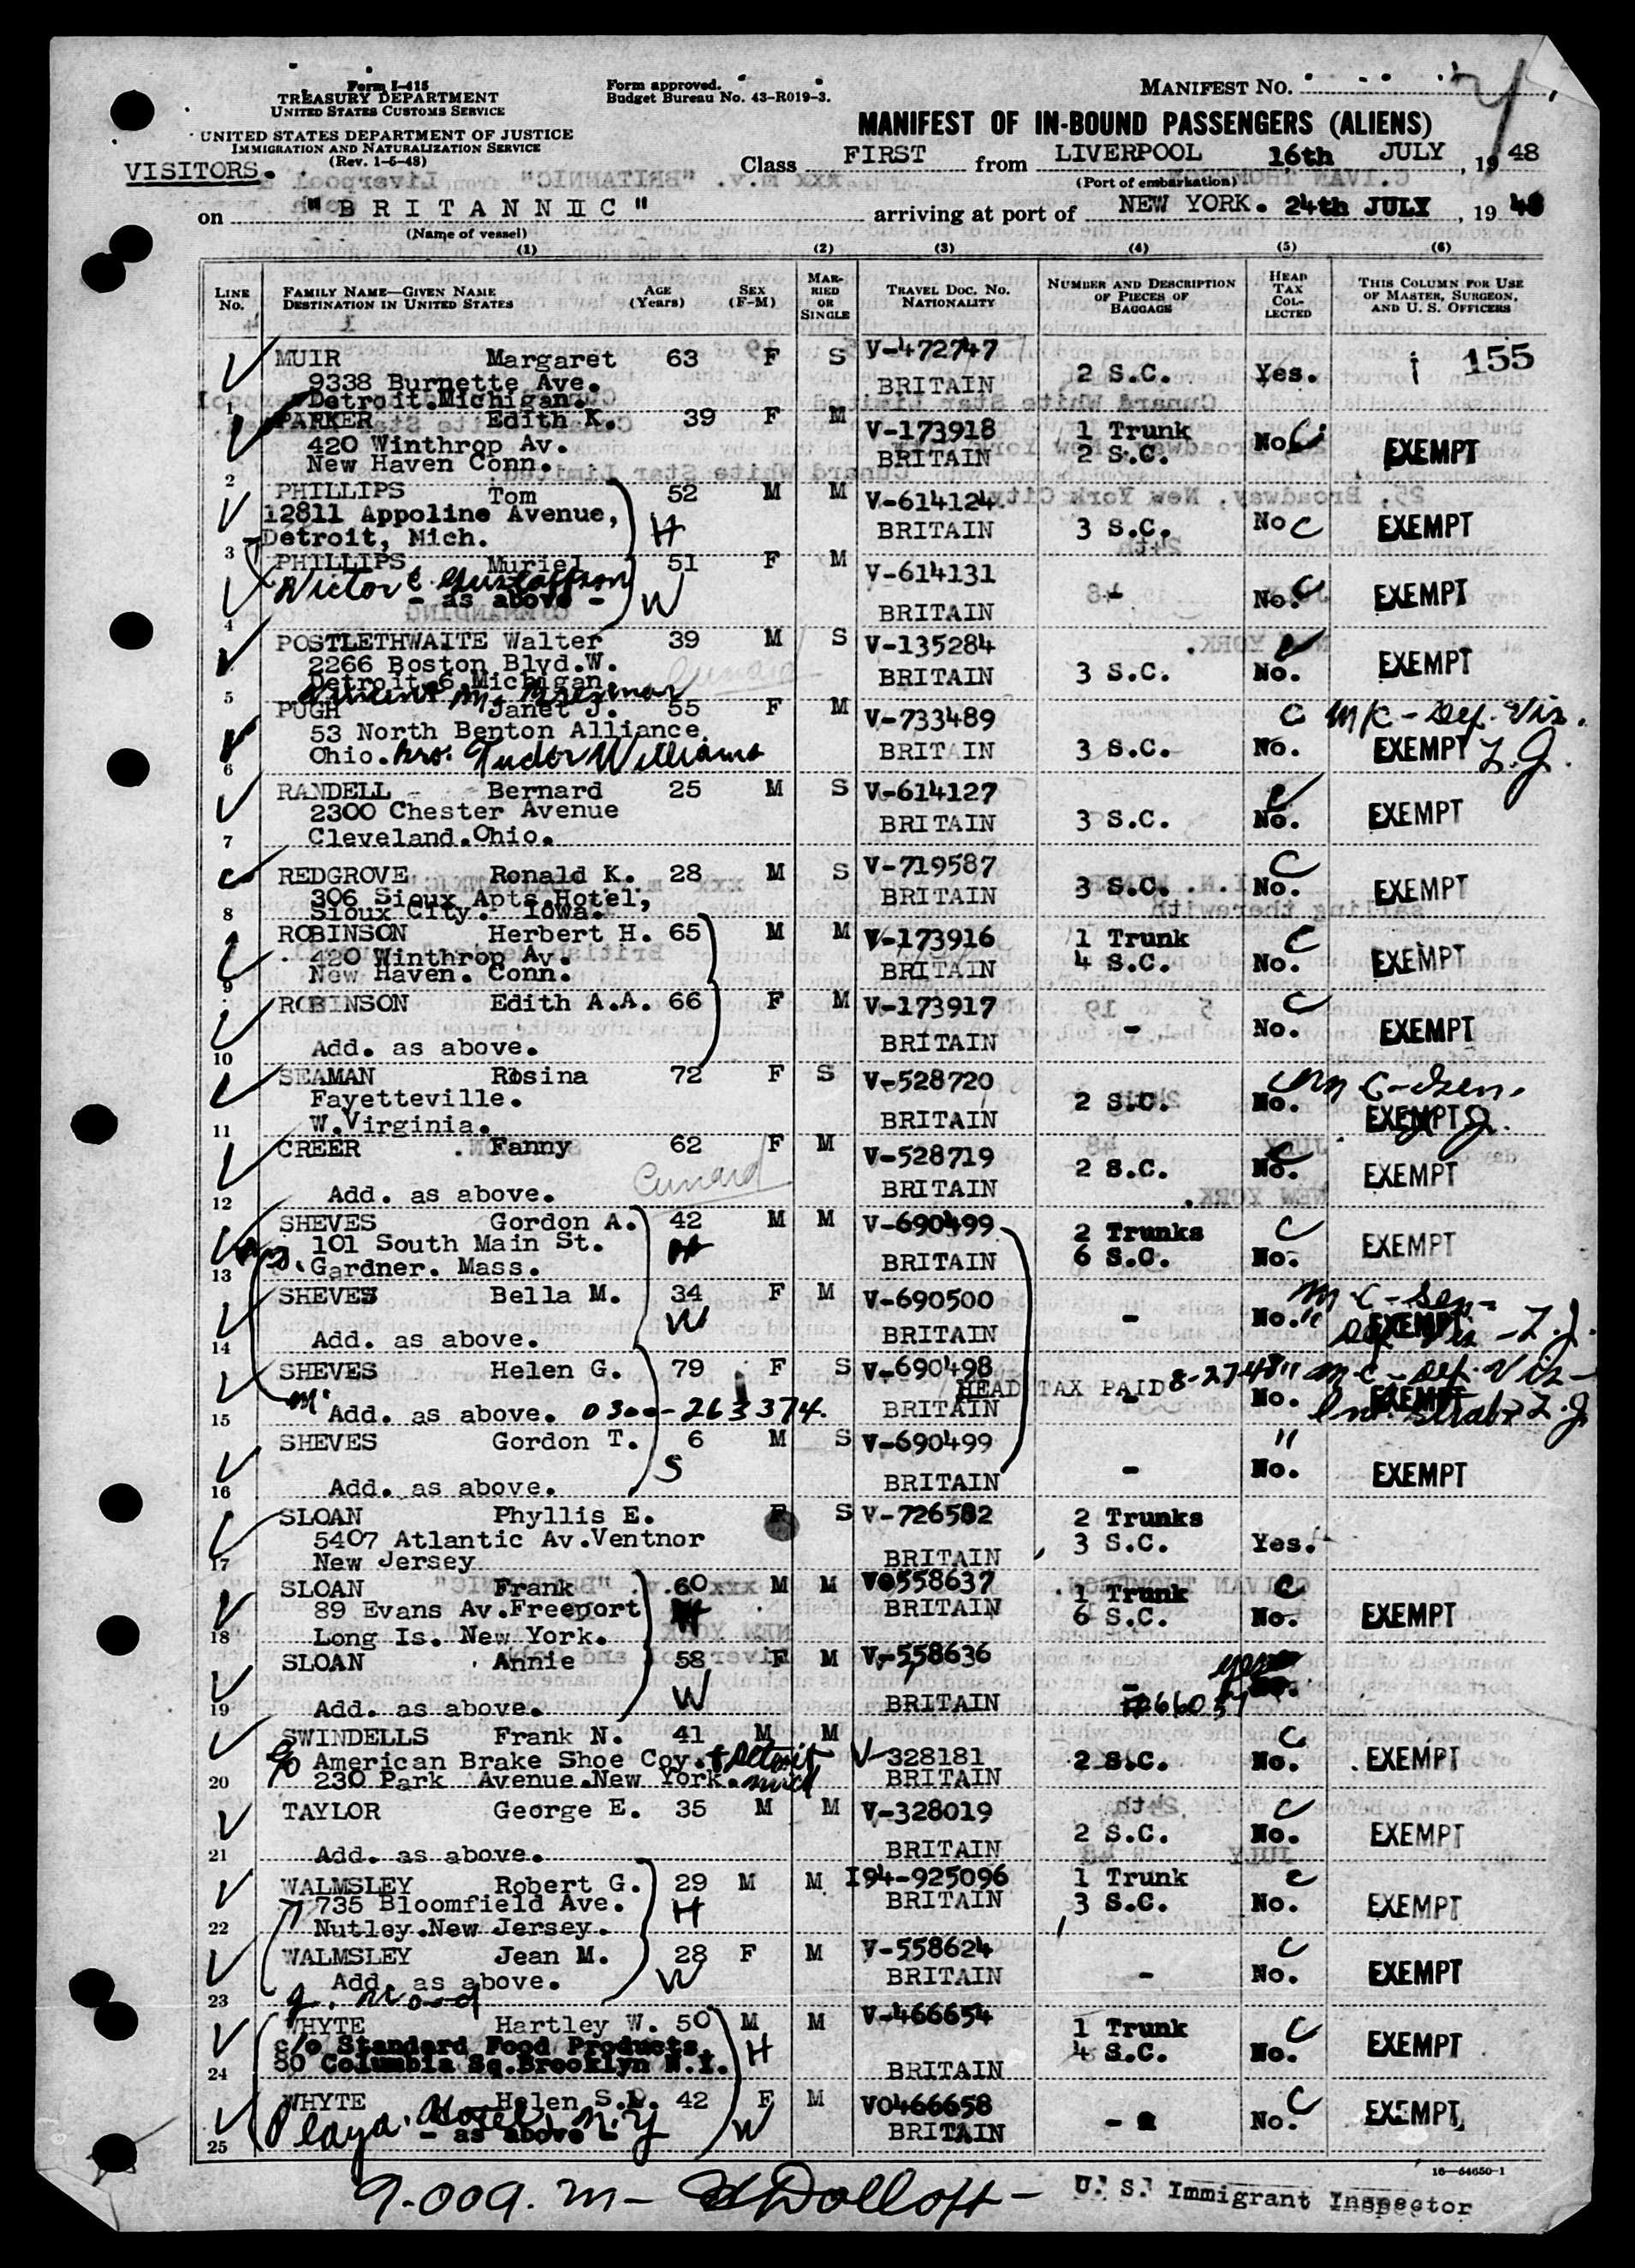 Form I-415
TREASURY DEPARTMENT
UNITED STATES CUSTOMS SERVICE
UNITED STATES DEPARTMENT OF JUSTICE
IMMIGRATION AND NATURALIZATION SERVICE
(Rev. 1-5-48)
VISITORS.
Form approved.
Budget Bureau No. 43-R019-3.
MANIFEST NO.
MANIFEST OF IN-BOUND PASSENGERS (ALIENS)
Class FIRST from LIVERPOOL 16th JULY, 1948
(Port of embarkation)
on "BRITANNIC" arriving at port of NEW YORK. 24th JULY, 1948
(Name of vessel)
(1) (2) (3) (4) (5) (6)
LINE NO. FAMILY NAME—GIVEN NAME DESTINATION IN UNITED STATES AGE (Years) SEX (F-M) MARRIED OR SINGLE TRAVEL DOC. NO. NATIONALITY NUMBER AND DESCRIPTION OF PIECES OF BAGGAGE HEAD TAX COLLECTED THIS COLUMN FOR USE OF MASTER, SURGEON, AND U. S. OFFICERS
MUIR Margaret 63 F S V-472747 155
9338 Burnette Ave. BRITAIN 2 S.C. Yes.
1 Detroit.Michigan.
PARKER Edith K. 39 F M V-173918 1 Trunk No. EXEMPT
420 Winthrop Av. BRITAIN 2 S.C.
2 New Haven Conn.
PHILLIPS Tom 52 M M V-614124
12811 Appoline Avenue, H BRITAIN 3 S.C. No C EXEMPT
3 Detroit, Mich.
PHILLIPS Muriel 51 F M V-614131
Victor E. Gustafson W BRITAIN - No. C EXEMPT
4 - as above -
POSTLETHWAITE Walter 39 M S V-135284
2266 Boston Blvd.W. BRITAIN 3 S.C. No. EXEMPT
5 Detroit 6.Michigan. Cunard
PUGH Janet J. 55 F M V-733489 C
53 North Benton Alliance. BRITAIN 3 S.C. No. EXEMPT
6 Ohio. bro. Tudor Williams
RANDELL Bernard 25 M S V-614127 C
2300 Chester Avenue BRITAIN 3 S.C. No. EXEMPT
7 Cleveland.Ohio.
REDGROVE Ronald K. 28 M S V-719587 C
306 Sioux Apts.Hotel, BRITAIN 3 S.C. No. EXEMPT
8 Sioux City. Iowa.
ROBINSON Herbert H. 65 M M V-173916 1 Trunk C
420 Winthrop Av. BRITAIN 4 S.C. No. EXEMPT
9 New Haven. Conn.
ROBINSON Edith A.A. 66 F M V-173917 C
10 Add. as above. BRITAIN - No. EXEMPT
SEAMAN Rosina 72 F S V-528720
Fayetteville. BRITAIN 2 S.C. No. EXEMPT
11 W.Virginia.
CREER Fanny 62 F M V-528719 2 S.C. No. EXEMPT
12 Add. as above. Cunard BRITAIN
SHEVES Gordon A. 42 M M V-690499 2 Trunks C
101 South Main St. H BRITAIN 6 S.C. No. EXEMPT
13 Gardner. Mass.
SHEVES Bella M. 34 F M V-690500
14 Add. as above. W BRITAIN - No. EXEMPT
SHEVES Helen G. 79 F S V-690498
HEAD TAX PAID 8-27-48
15 Add. as above. 0300-263374. BRITAIN - No. EXEMPT
SHEVES Gordon T. 6 M S V-690499 "
16 Add. as above. S BRITAIN - No. EXEMPT
SLOAN Phyllis E. F S V-726582 2 Trunks
5407 Atlantic Av.Ventnor BRITAIN 3 S.C. Yes.
17 New Jersey
SLOAN Frank 60 M M V0558637 1 Trunk C
89 Evans Av.Freeport H BRITAIN 6 S.C. No. EXEMPT
18 Long Is. New York.
SLOAN Annie 58 F M V-558636 yes
19 Add. as above. W BRITAIN -
SWINDELLS Frank N. 41 M M C
c/o American Brake Shoe Coy. + Detroit V-328181 2 S.C. No. EXEMPT
20 230 Park Avenue.New York. mich BRITAIN
TAYLOR George E. 35 M M V-328019 C
21 Add. as above. BRITAIN 2 S.C. No. EXEMPT
WALMSLEY Robert G. 29 M M I94-925096 1 Trunk C
735 Bloomfield Ave. H BRITAIN 3 S.C. No. EXEMPT
22 Nutley.New Jersey.
WALMSLEY Jean M. 28 F M V-558624 C
23 Add. as above. W BRITAIN - No. EXEMPT
WHYTE Hartley W. 50 M M V-466654 1 Trunk C
c/o Standard Food Products. H 4 S.C. No. EXEMPT
24 80 Columbia Sq.Brooklyn N.Y. BRITAIN
WHYTE Helen S.L. 42 F M V0466658 C
Playa Hotel, N.Y W BRITAIN - No. EXEMPT
25 - as above -
16—54650-1
9-00 a.m - Dolloff - U. S. Immigrant Inspector